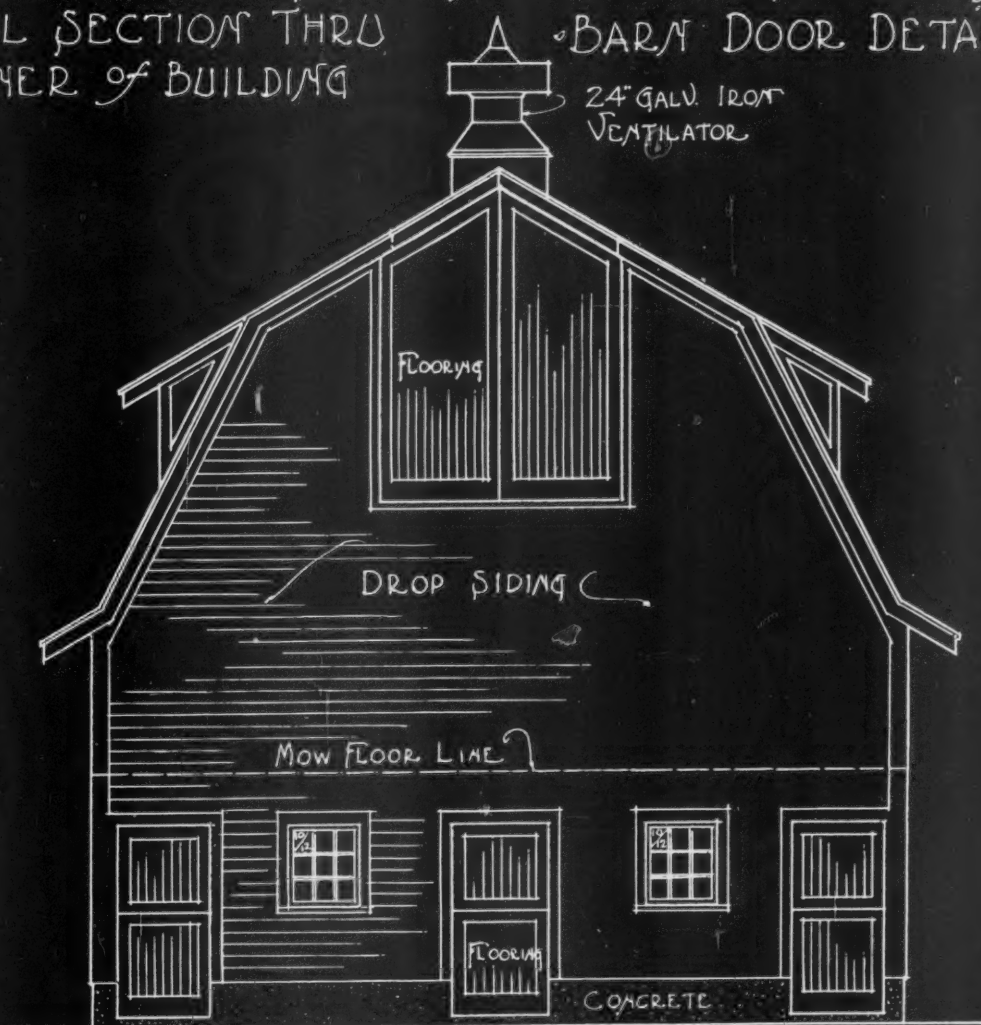 L SECTION THRU
NER of BUILDING
BARN DOOR DETA
24" GALV. IRON
VENTILATOR
FLOORING
DROP SIDING
MOW FLOOR LINE
10/12
10/12
FLOORING
CONCRETE